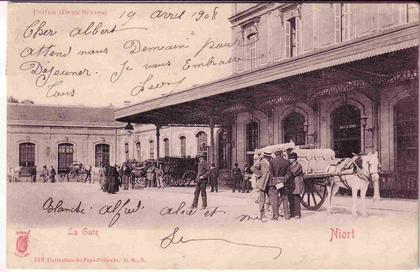 Poitou (Deux Sèvres)
19 avril 1908
Cher Albert
attend nous Demain pour
Déjeuner. Je vous Embrasse
Tous
Blanche Alfred Alice et
La Gare
Niort
113 Collection du Pays Poitevin, G. B., N.